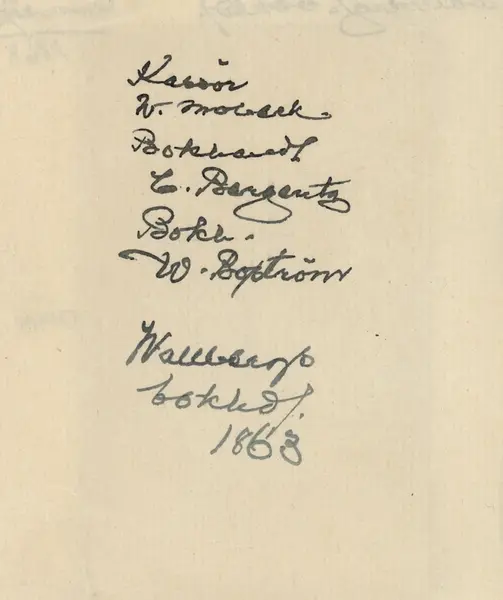 Kassör
W. Moback
Bokhandl
C. Bergentz
Bokh.
W. Boström
Wallbergs
bokhdl.
1863